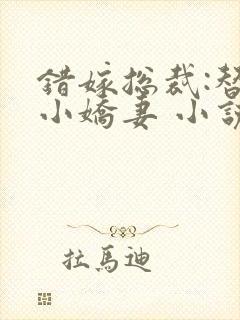 錯嫁总裁:替
小嬌妻 小說
拉馬迪